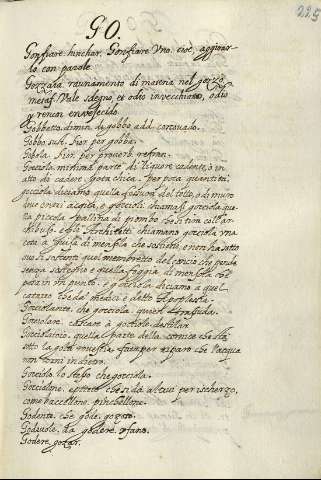 225
GO.
Gonfiare. hinchar. Gonfiare Uno. cioè, aggirar
lo con parole.
Gorzaia raunamento di materia nel gozzo.
metaf. Vale sdegno, et odio invecchiato, odio
y rencor envejecido.
Gobbetto. dimin. di gobbo. add. corcovado.
Gobbo. sust. Scr. per gobba.
Gobola. Scr. per proverb. refran.
Gocciola. minima parte di liquore cadente, o in
atto di cadere. Gota chica. Per poca quantità.
gocciola diciamo quella fessura del tetto, o di muro
onde entri acqua, e goccioli. chiamasi gocciola que
lla piccola pallina di piombo che si tira coll'ar
chibuso. e gli Architetti chiamano gocciola una
cosa a guisa di mensola che sostiene, e non ha sotto
ove si sostenti quel membretto del concio che pende
senza sostegno e quella foggia di mensola che
posa in un punto. e gocciola diciamo a quel
cataro che da' medici è detto Apoplessia.
Gocciolante, che gocciola. quien
Gocciolare. cascare a gocciole. destilar.
Gocciolatoio, quella parte della cornice che sta
sotto la fuori per riparo che l'acqua
non torni indietro.
Gocciolo. lo stesso che gocciola.
Gocciolone. epiteto che si dà altrui per ischerzo,
come baccellone, pincbellone.
Godente, che gode. gozoso.
Godevole. da godere. ufano.
Godere. gozar.